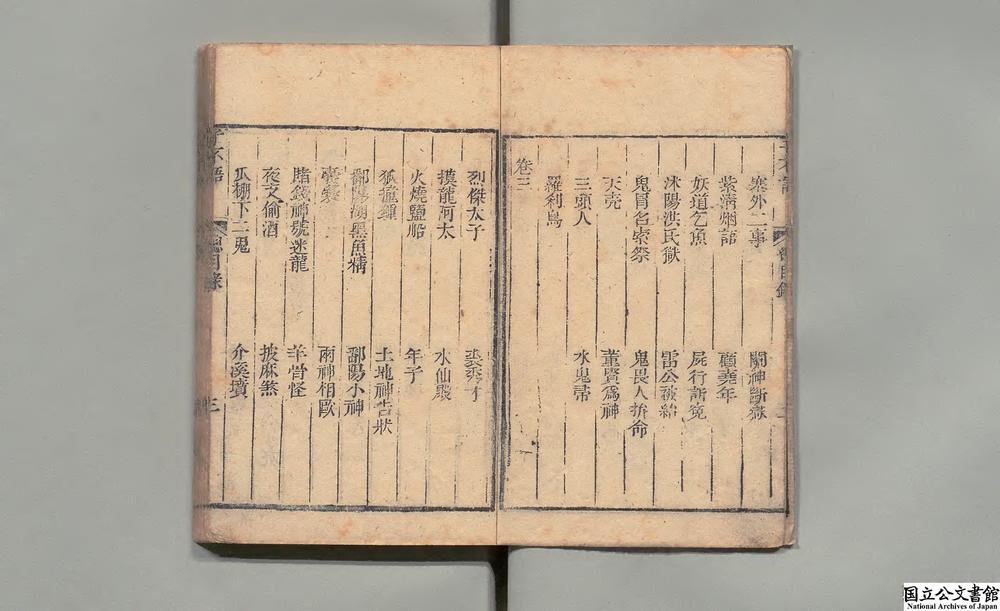 塞外二事　關神斷獄
紫清烟語　顧堯年
妖道乞魚　屍行訴冤
沭陽洪氏獄　雷公被紿
鬼冒名索祭　鬼畏人拚命
天壳　董賢爲神
三頭人　水鬼帚
羅刹鳥
卷三
烈傑太子　裘秀才
摸龍阿太　水仙殿
火燒鹽船　年子
狐撞鐘　土地神告狀
鄱陽湖黑魚精　鄱陽小神
囊囊　兩神相毆
賭錢神號迷龍　羊骨怪
夜叉偷酒　披麻煞
瓜棚下二鬼　介溪墳
子不語　總目錄　三
国立公文書館
National Archives of Japan